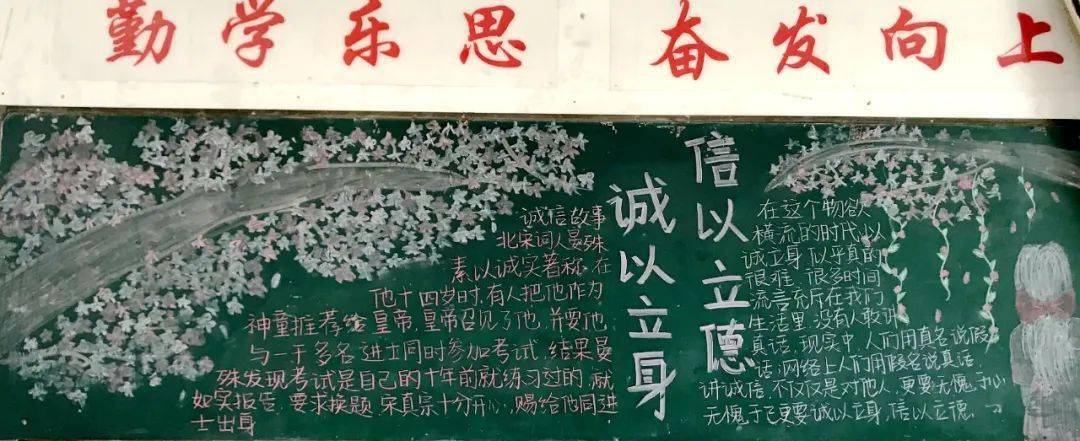 勤学乐思 奋发向上
诚信故事
北宋词人晏殊
素以诚实著称.在
他十四岁时,有人把他作为
神童推荐给皇帝.皇帝召见了他,并要他
与一千多名进士同时参加考试.结果晏
殊发现考试是自己的十年前就练习过的,就
如实报告,要求换题.宋真宗十分开心,赐给他同进
士出身
诚以立身
信以立德
在这个物欲
横流的时代,以
诚立身,似乎真的
很难.很多时间
流言充斥在我们
生活里,没有人敢讲
真话.现实中,人们用真名说假
话;网络上人们用假名说真话.
讲诚信,不仅仅是对他人,更要无愧于心
无愧于己更要诚以立身,信以立德.